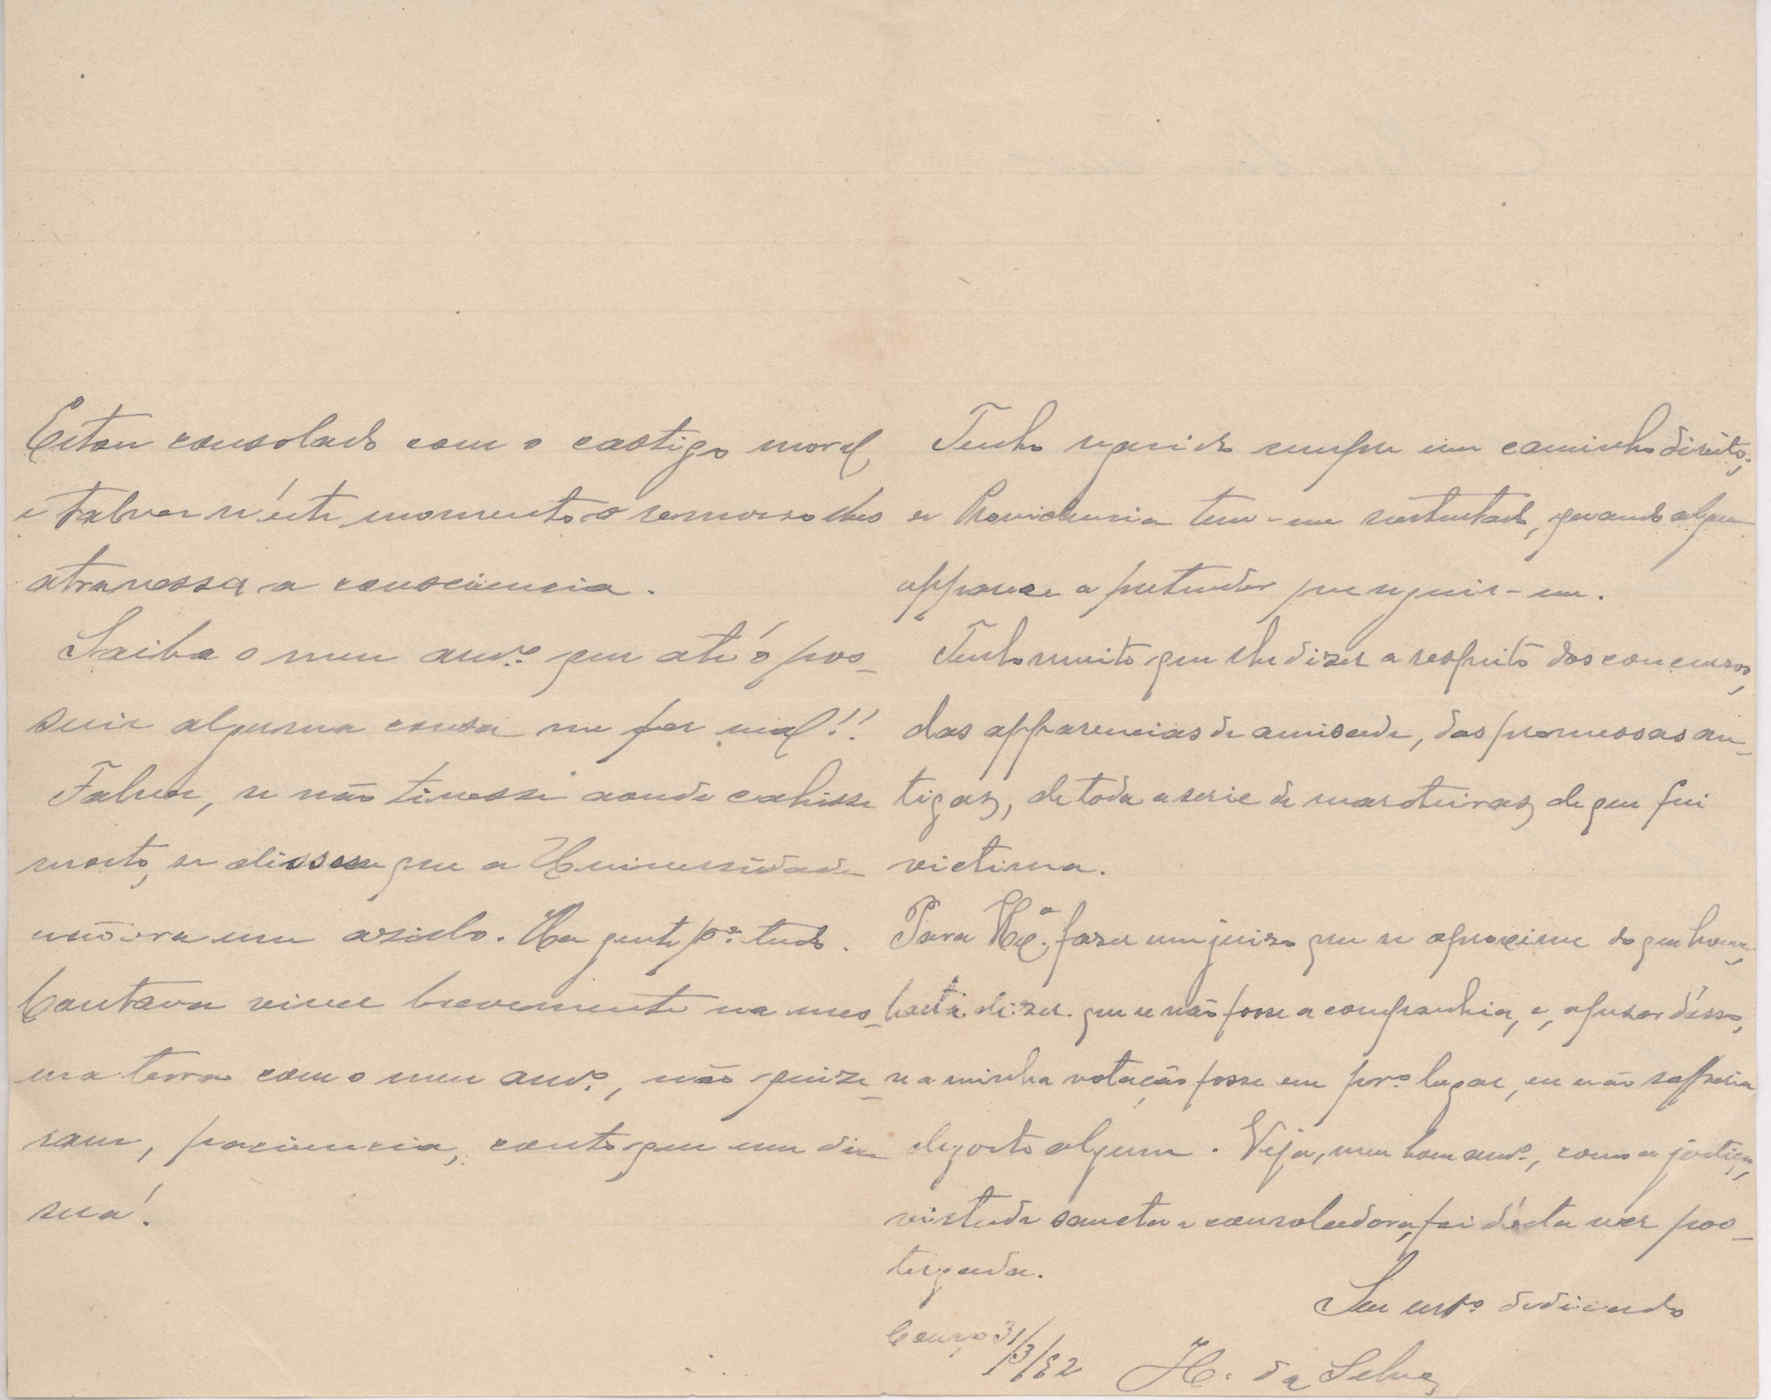 Estou consolado com o castigo moral,
e talvez n'éste momento o remorso lhes
atravessa a consciencia.
Saiba o meu amº. que até o pos-
suir alguma cousa me fez mal!!
Talvez, se não tivesse aonde cahisse
morto, se dissesse que a Universidade
não era um asielo. Ha gente pª. tudo.
Contava viver brevemente na mes-
ma terra com o meu amº., não quize-
ram, paciencia, conto que um dia
será!
Tenho seguido sempre um caminho direito,
e a Providencia tem-me sustentado, quando alguem
apparece a pretender perseguir-me.
Tenho muito que lhe dizer a respeito dos concursos,
das apparencias de amisade, das promessas an-
tigas, de toda a serie de maroteiras de que fui
victima.
Para V. Exª. fazer um juizo que se aproxime do que houve,
basta dizer que se não fosse a companhia, e, apesar d'isso,
se a minha votação fosse em prº. lugar, eu não soffreria
desgosto algum. Veja, meu bom amº., como a justiça,
virtude sancta e consoladora, foi d'esta vez pos-
tergada.
Seu mtº. dedicado
31/3/82
H. da Silva